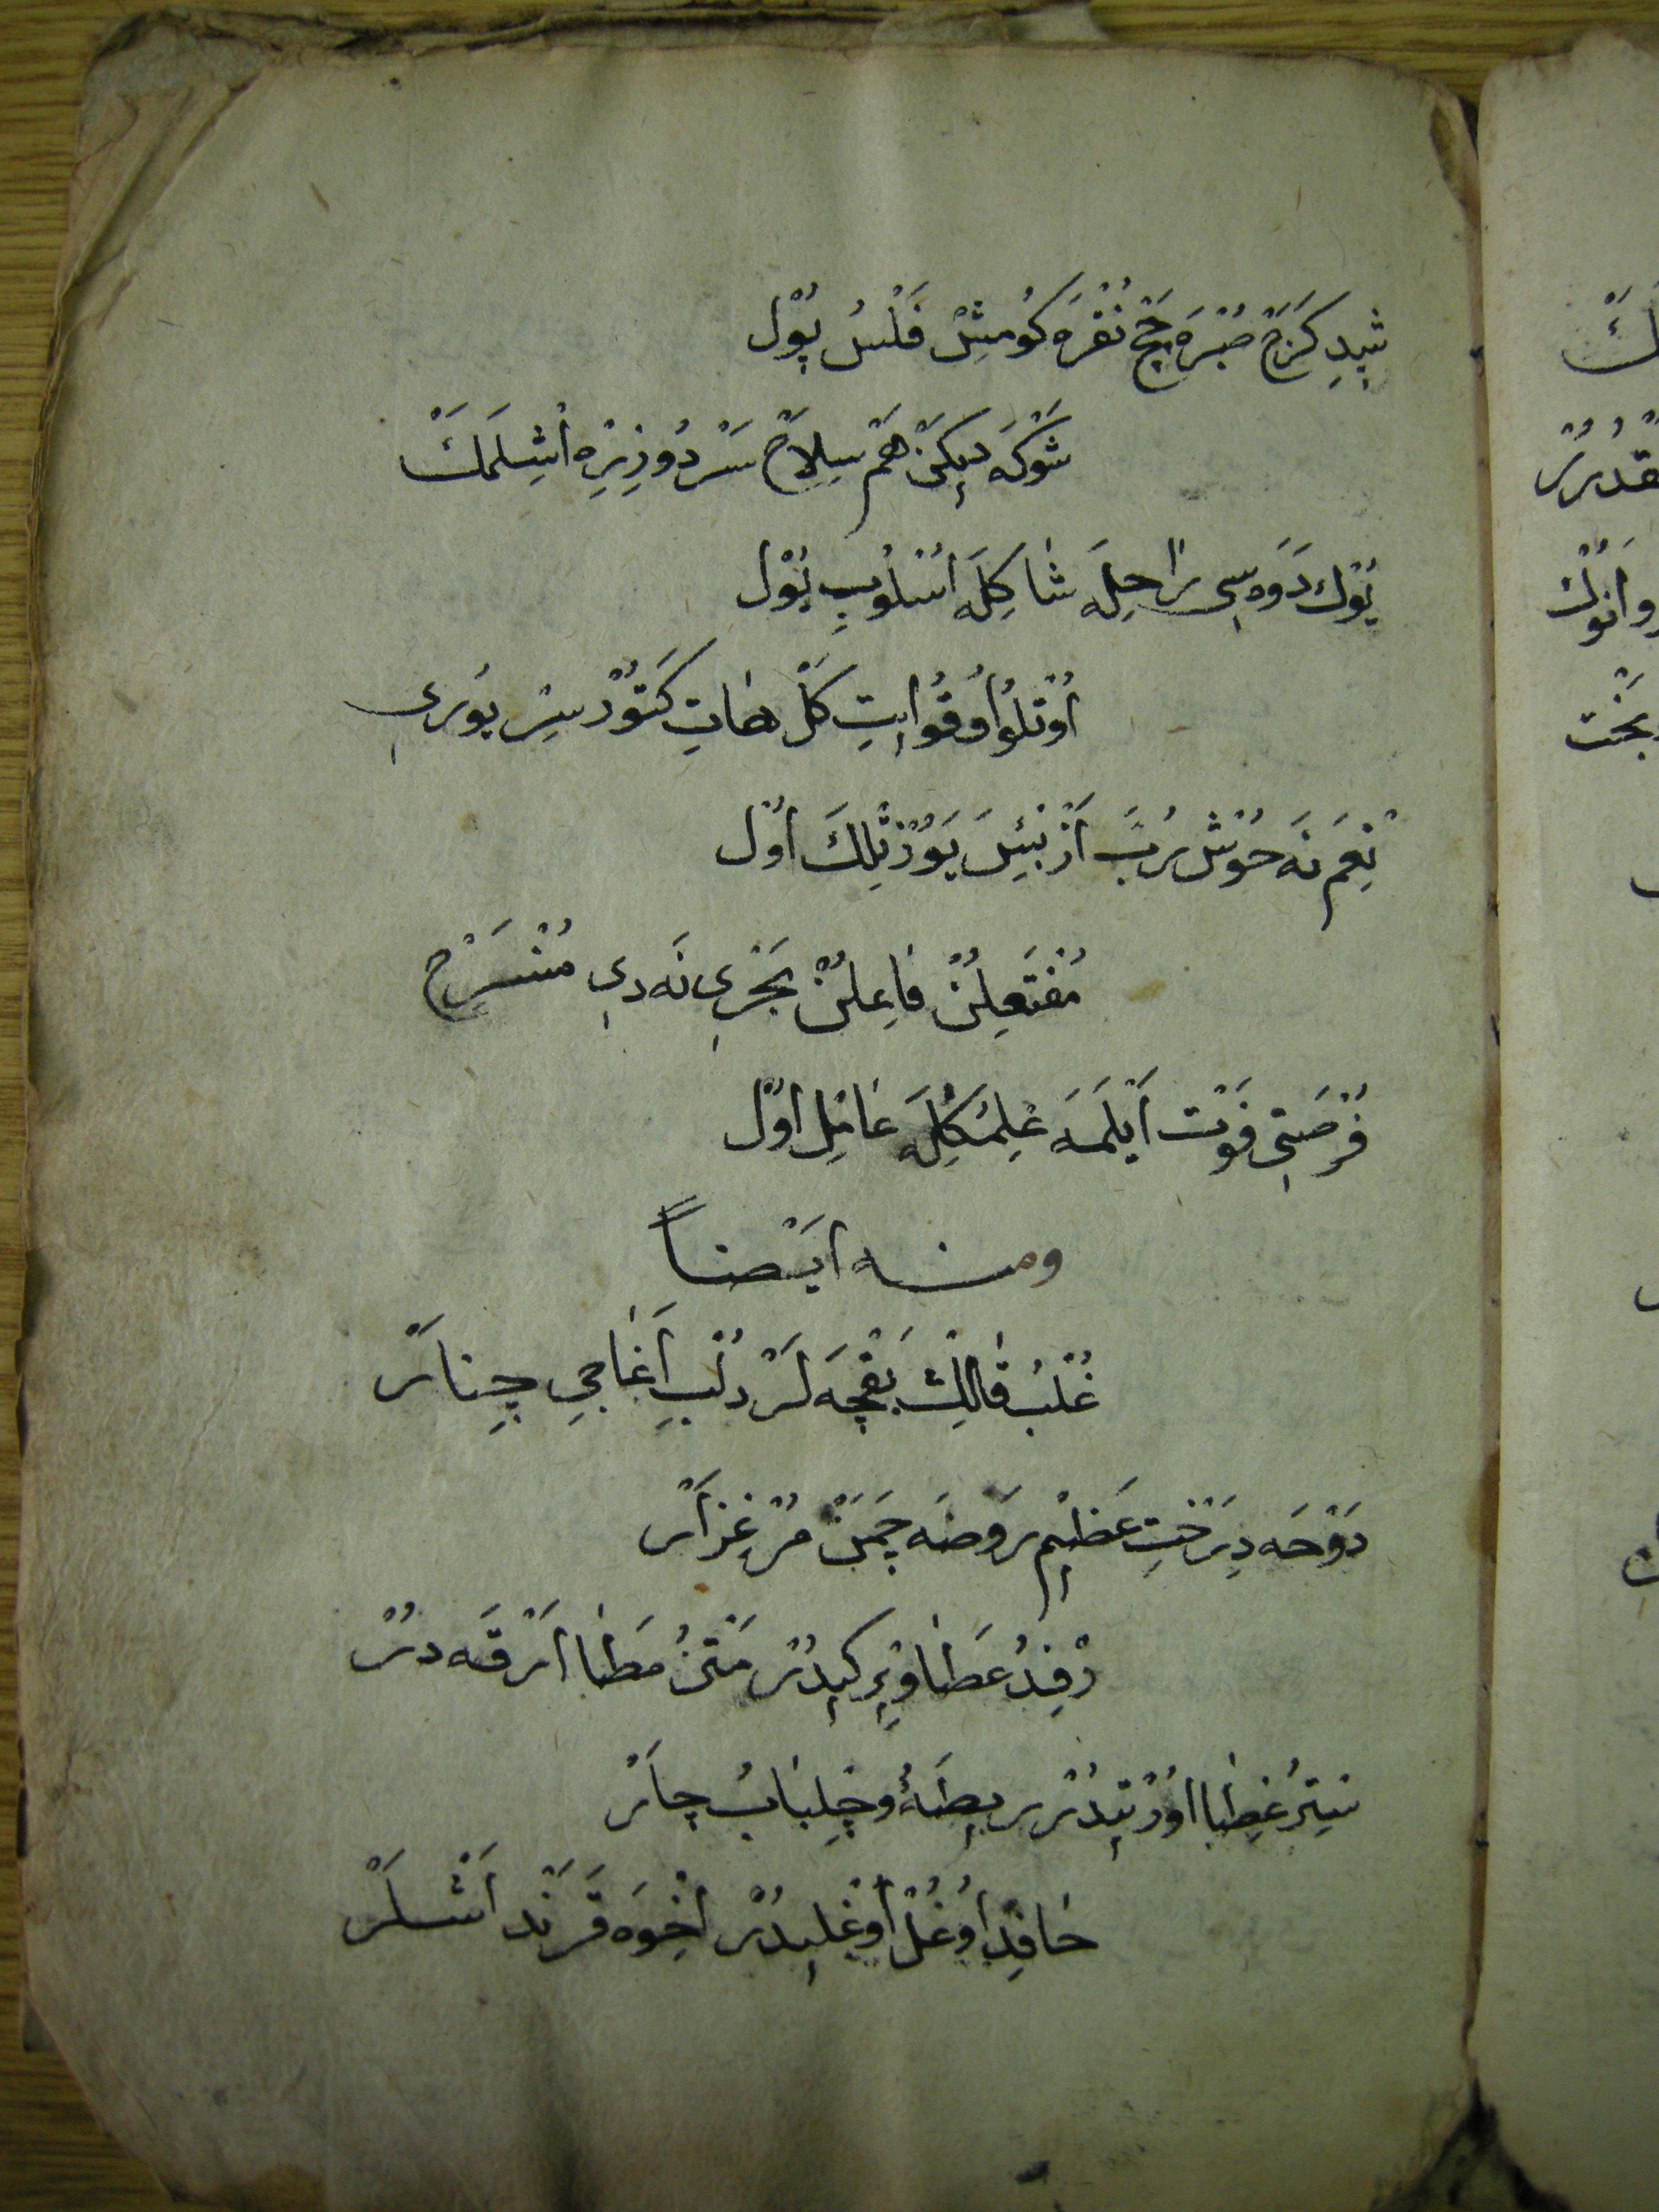 شِيدِ كَرَجْ صُبْرَه جَجْ نُقْرَه كُومُشْ فَلْسُ پُوْل
شَوْكَه دِيكَنْ هَمْ سِلَاحْ سَرْدُ وزِيَرِه اُشِلَمَكْ
يُوْك دَوَه سِى رَاحِلَه شَاكِلَه اُسْلُوبِ يُوْل
اُوْتلُو اُوقُو اِيتِ كَلْ هَاتِ كَتُوْرْ سِرْ يُورِى
نِعَمْ نَه خُوْشْ رُبَّ اَزْ بِئِسَ يَوُزْ تِلِكَ اُوْل
مُفْتَعِلُنْ فَاعِلُنْ بَحْرِى نَه دِى مُنْسَرِحْ
فُرْصَتِى فَوْت اَيْلَمَه عِلِمُكِلَه عَامِل اُوْل
ومنه ايَضاً
غُلْبُ قَالِكْ بَقْچَه لَرْ دُلْبِ اَغَاجِى چِنَارْ
دَوْحَه دِرَخْتِ عَظِيمْ رَوضَه چَمَنْ مُرْغِزَارْ
رِفْدُ عَطَا وِيرِكِيدُرْ مَتْنُ مَطَا اَرْقَه دُرْ
سِتِرُ غِطَا اوُرْتِيدُرْ رِيطَةُ وجِلِبَابُ چَارْ
حَافِدِ اُوغُلْ اُوغْلِيدُرْ اِخْوَه قَرَنْدَاشْلَرْ